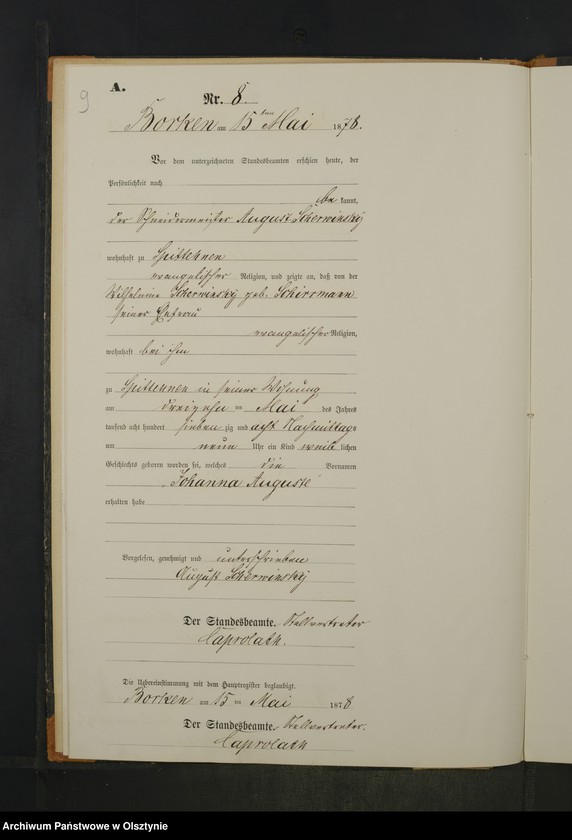 A.
9
Nr. 8.
Borken am 15ten Mai 1878.
Vor dem unterzeichneten Standesbeamten erschien heute, der
Persönlichkeit nach
be kannt,
der Schneidermeister August Scherwinsky
wohnhaft zu Spittehnen
evangelischer Religion, und zeigte an, daß von der
Wilhelmine Scherwinsky geb. Schirrmann
seiner Ehefrau
evangelischer Religion,
wohnhaft bei ihm
zu Spittehnen in seiner Wohnung
am dreizehn ten Mai des Jahres
tausend acht hundert sieben zig und acht Nachmittags
um neun Uhr ein Kind weib lichen
Geschlechts geboren worden sei, welches die Vornamen
Johanna Auguste
erhalten habe
Vorgelesen, genehmigt und unterschrieben
August Scherwinsky
Der Standesbeamte. Stellvertreter
Caprolath.
Die Uebereinstimmung mit dem Hauptregister beglaubigt.
Borken am 15 ten Mai 1878
Der Standesbeamte. Stellvertreter.
Caprolath
Archiwum Państwowe w Olsztynie